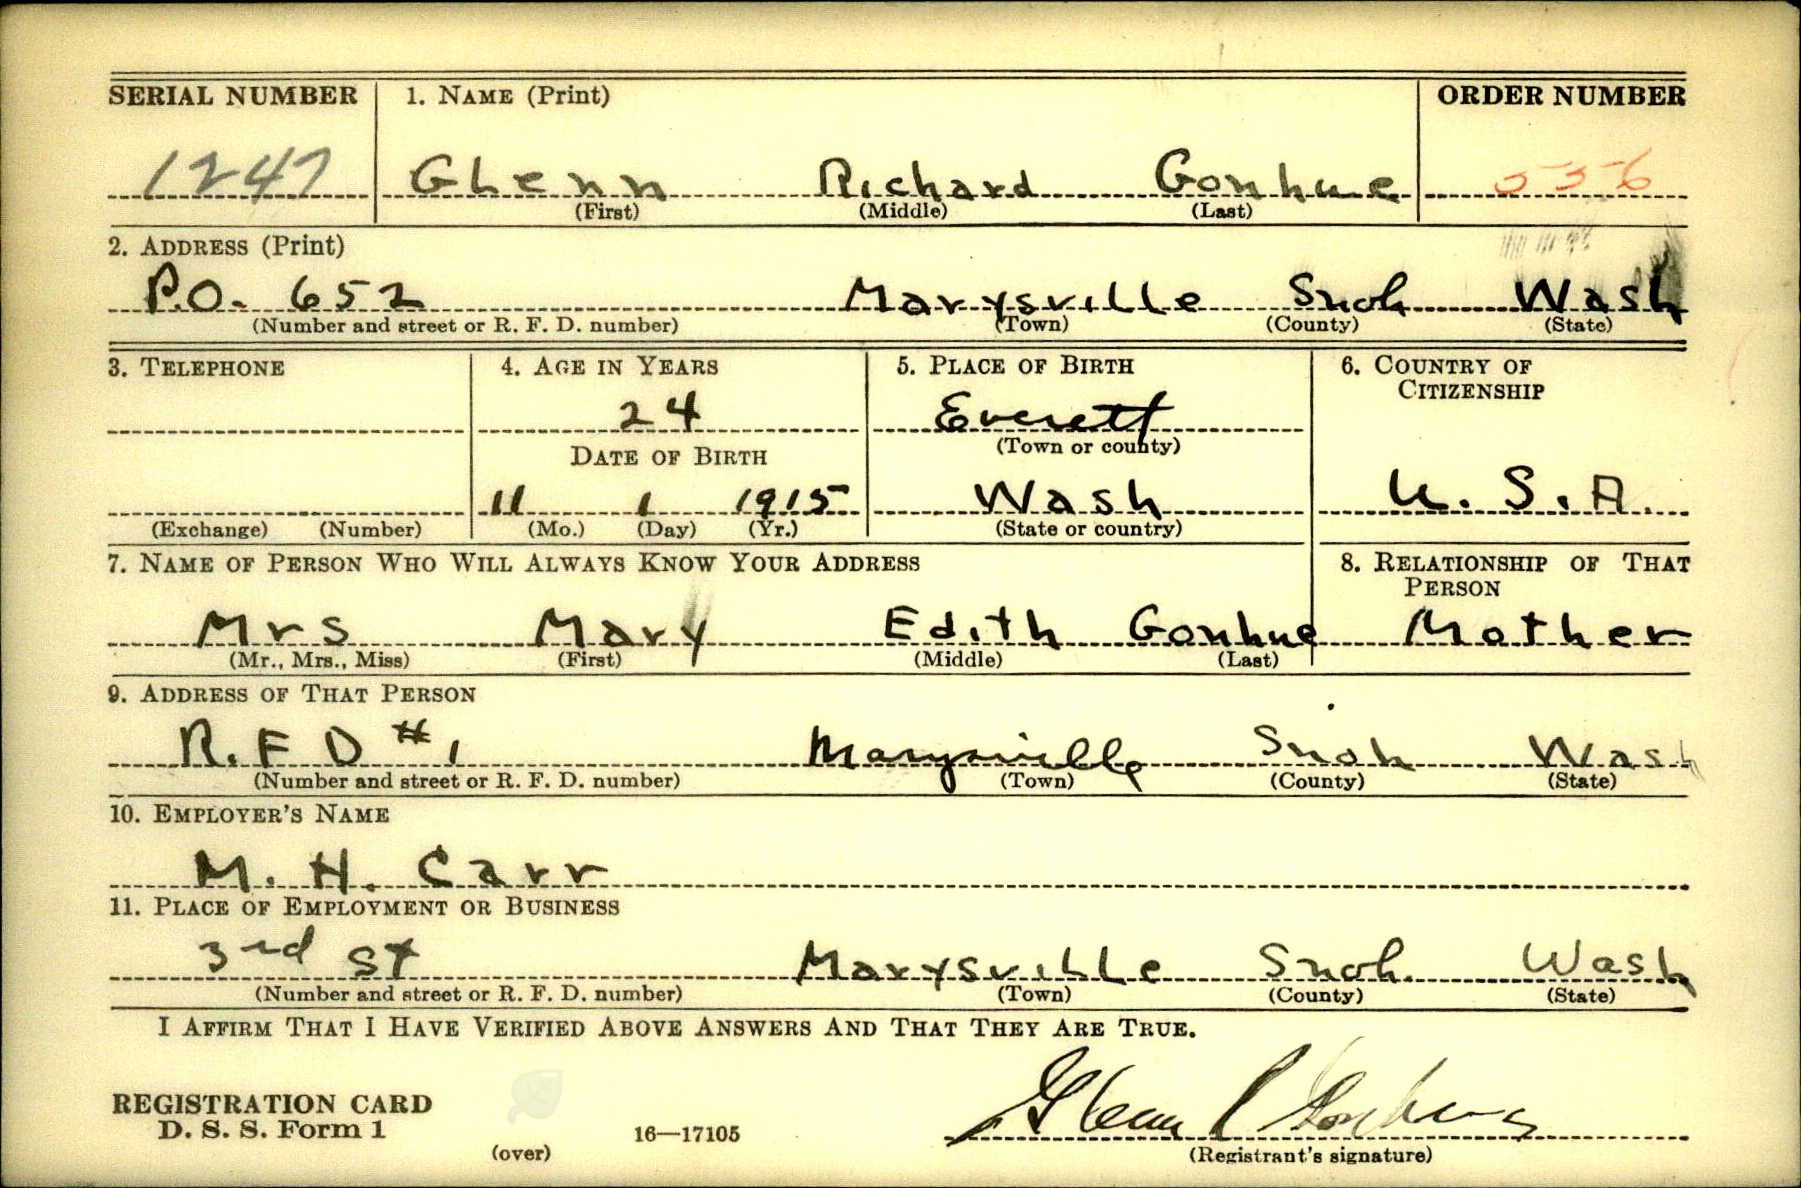 SERIAL NUMBER 1. NAME (Print) ORDER NUMBER
1247 Glenn Richard Gonhue 556
(First) (Middle) (Last)
2. ADDRESS (Print)
P.O. 652 Marysville Snoh Wash
(Number and street or R. F. D. number) (Town) (County) (State)
3. TELEPHONE 4. AGE IN YEARS 5. PLACE OF BIRTH 6. COUNTRY OF
CITIZENSHIP
24 Everett
(Town or county)
DATE OF BIRTH
11 1 1915 Wash U. S. A.
(Exchange) (Number) (Mo.) (Day) (Yr.) (State or country)
7. NAME OF PERSON WHO WILL ALWAYS KNOW YOUR ADDRESS 8. RELATIONSHIP OF THAT
PERSON
Mrs Mary Edith Gonhue Mother
(Mr., Mrs., Miss) (First) (Middle) (Last)
9. ADDRESS OF THAT PERSON
R. F D #1 Marysville Snoh Wash
(Number and street or R. F. D. number) (Town) (County) (State)
10. EMPLOYER'S NAME
M. H. Carr
11. PLACE OF EMPLOYMENT OR BUSINESS
3rd St Marysville Snoh. Wash
(Number and street or R. F. D. number) (Town) (County) (State)
I AFFIRM THAT I HAVE VERIFIED ABOVE ANSWERS AND THAT THEY ARE TRUE.
REGISTRATION CARD
D. S. S. Form 1 16—17105 Glenn R Gonhue
(over) (Registrant's signature)